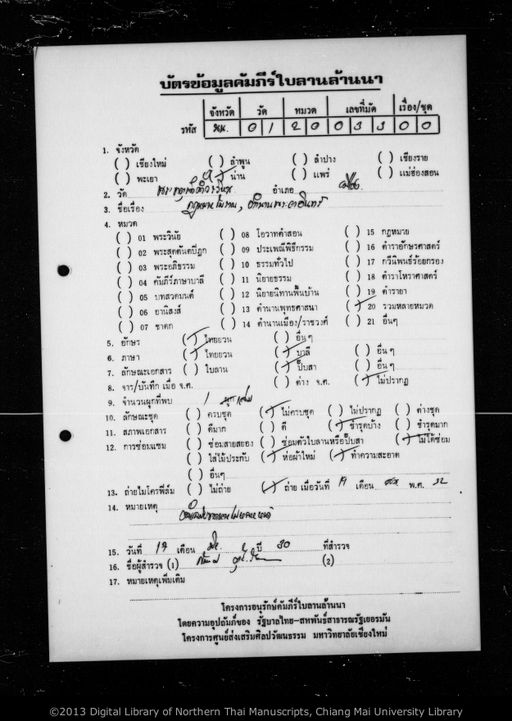 บัตรข้อมูลคัมภีร์ใบลานล้านนา
จังหวัด วัด หมวด เลขที่มัด เรื่อง/ชุด
รหัส นน. 0 1 2 0 0 3 3 0 0
1. จังหวัด
( ) เชียงใหม่ ( ) ลำพูน ( ) ลำปาง ( ) เชียงราย
( ) พะเยา (/) น่าน ( ) แพร่ ( ) แม่ฮ่องสอน
2. วัด อำเภอ เมือง
3. ชื่อเรื่อง
4. หมวด
( ) 01 พระวินัย ( ) 08 โอวาทคำสอน ( ) 15 กฎหมาย
( ) 02 พระสุตตันตปิฎก ( ) 09 ประเพณีพิธีกรรม ( ) 16 ตำราอักษรศาสตร์
( ) 03 พระอภิธรรม ( ) 10 ธรรมทั่วไป ( ) 17 กวีนิพนธ์ร้อยกรอง
( ) 04 คัมภีร์ภาษาบาลี ( ) 11 นิยายธรรม ( ) 18 ตำราโหราศาสตร์
( ) 05 บทสวดมนต์ ( ) 12 นิยายนิทานพื้นบ้าน ( ) 19 ตำรายา
( ) 06 อานิสงส์ ( ) 13 ตำนานพุทธศาสนา (/) 20 รวมหลายหมวด
( ) 07 ชาดก ( ) 14 ตำนานเมือง/ราชวงศ์ ( ) 21 อื่นๆ
5. อักษร (/) ไทยยวน ( ) อื่นๆ
6. ภาษา (/) ไทยยวน (/) บาลี ( ) อื่นๆ
7. ลักษณะเอกสาร ( ) ใบลาน (/) ปั๊บสา ( ) อื่นๆ
8. จาร/บันทึก เมื่อ จ.ศ. ( ) ต่าง จ.ศ. (/) ไม่ปรากฏ
9. จำนวนผูกที่พบ 1
10. ลักษณะชุด ( ) ครบชุด (/) ไม่ครบชุด ( ) ไม่ปรากฏ ( ) ต่างชุด
11. สภาพเอกสาร ( ) ดีมาก ( ) ดี (/) ชำรุดบ้าง ( ) ชำรุดมาก
12. การซ่อมแซม ( ) ซ่อมสายสยอง ( ) ซ่อมตัวใบลานหรือปั๊บสา (/) ไม่ได้ซ่อม
( ) ใส่ไม้ประกับ (/) ห่อผ้าใหม่ (/) ทำความสะอาด
( ) อื่นๆ
13. ถ่ายไมโครฟิล์ม ( ) ไม่ถ่าย (/) ถ่าย เมื่อวันที่ เดือน พ.ศ. 32
14. หมายเหตุ
15. วันที่ 17 เดือน ปี 30 ที่สำรวจ
16. ชื่อผู้สำรวจ (1) (2)
17. หมายเหตุเพิ่มเติม
โครงการอนุรักษ์คัมภีร์ใบลานล้านนา
โดยความอุปถัมภ์ของ รัฐบาลไทย-สหพันธ์สาธารณรัฐเยอรมัน
โครงการศูนย์ส่งเสริมศิลปวัฒนธรรม มหาวิทยาลัยเชียงใหม่
©2013 Digital Library of Northern Thai Manuscripts, Chiang Mai University Library